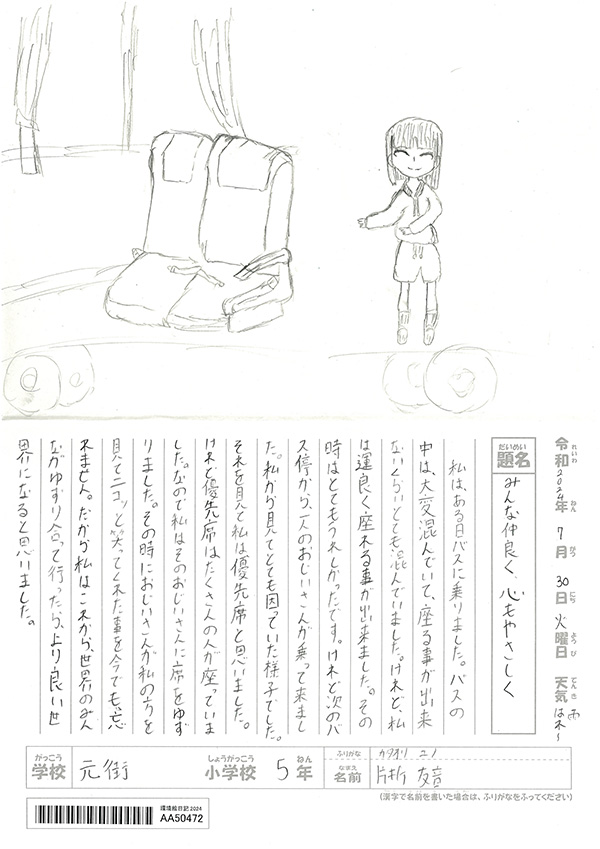 令和2024年 7月 30日 火曜日 天気 雨
れいわ ねん がつ にち ようび てんき
だいめい
題名 みんな仲良く、心もやさしく
私は、ある日バスに乗りました。バスの
中は、大変混んでいて、座る事が出来
ないくらいとても混んでいました。けれど、私
は運良く座れる事が出来ました。その
時はとてもうれしかったです。けれど次のバ
ス停から、一人のおじいさんが乗って来まし
た。私から見てとても困っていた様子でした。
それを見て私は優先席と思いました。
けれど優先席はたくさんの人が座っていま
した。なので私はそのおじいさんに席をゆず
りました。その時におじいさんが私の方を
見てニコッと笑ってくれた事を今でも、忘
れません。だから私はこれから、世界のみん
ながゆずり合って行ったら、より良い世
界になると思いました。
がっこう
学校 元街
しょうがっこう ねん
小学校 5年
ふりがな カタオリ ユノ
なまえ
名前 片折 友音
(漢字で名前を書いた場合は、ふりがなをふってください)
環境絵日記2024
AA50472